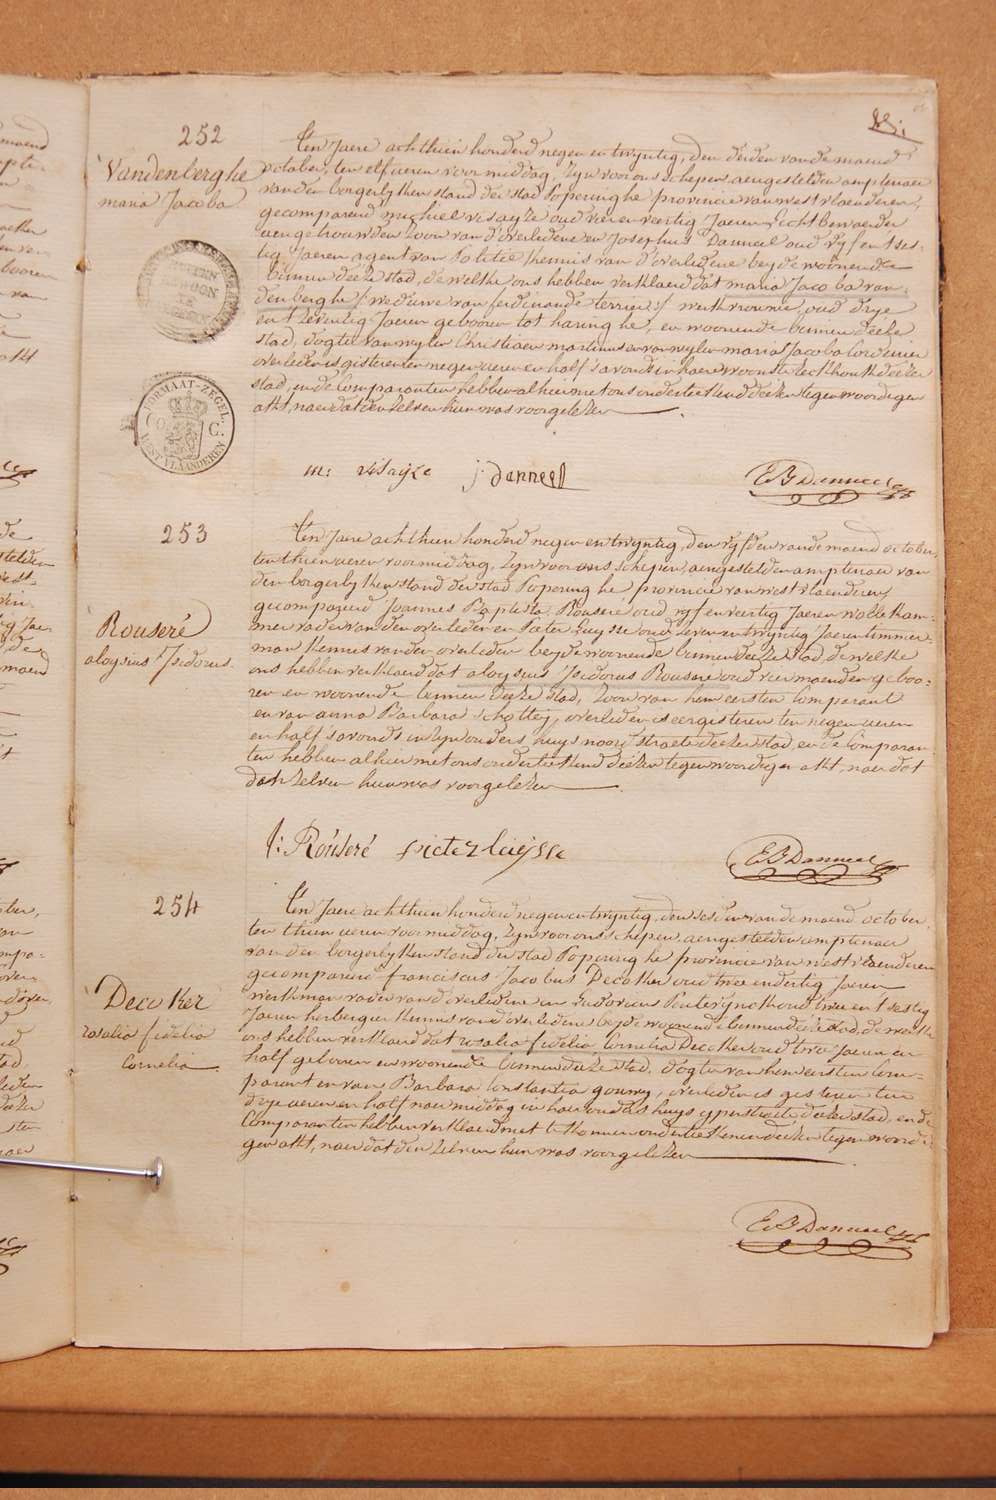 252
Vandenberghe
maria Jacoba
Ten Jaere achthien honderd negen en twyntig, den derden van de maend
october, ten elf ueren voormiddag, Zyn voor ons schepen, aengestelden amptenaer
van den borgerlyken stand der stad Poperinghe provincie van west vlaenderen,
gecompareerd michiel visayze oud vier en veertig Jaeren
aengetrouwden Zoon van d'overledene en Josephus Danneel oud vyf en tses-
tig Jaeren agent van Politie kennis van d'overledene beyde woonende
binnen deeze stad, de welke ons hebben verklaerd dat maria Jacoba van-
denberghe (wedúwe van ferdinande terrier) werkvrouwe, oud drye
en tzeventig Jaeren geboren tot haringhe, en woonende binnen deeze
stad, dogter van wylen Christiaen martinus en van wylen maria Jacoba Cordenier
overleden is gisteren ten negen ueren en half s'avonds in haere woonste
stad, en de Comparanten hebben alhier met ons onderteekend deezen tegenwoordigen
akt, naer dat den zelven hun was voorgelezen
FORMAAT-ZEGEL
WEST VLAANDEREN
m: visayze j: danneel
E B Danneel
253
Rouseré
aloysius Isidorus
Ten Jaere achthien honderd negen en twyntig, den vyfden van de maend october,
ten thien ueren voormiddag, Zyn voor ons schepen, aengestelden amptenaer van
den borgerlyken stand der stad Poperinghe, provincie van west vlaenderen,
gecompareerd Joannes Baptista Rouseré oud vyf en veertig Jaeren wollekam-
mer vader van den overleden en Pieter Luysse oud zeven en twyntig Jaeren timmer-
man kennis van den overleden beyde woonende binnen deeze stad, de welke
ons hebben verklaerd dat aloysius Isidorus Rouseré oud vier maenden geboo-
ren en woonende binnen deeze stad, Zoon van hem eersten Comparant
en van anna Barbara schottey, overleden is eergisteren ten negen ueren
en half s'avonds in Zyn ouders huys noordstraete deezer stad, en de Comparan-
ten hebben alhier met ons onderteekend deezen tegenwoordigen akt, naer dat
dezen zelven hun was voorgelezen
J: Rouseré pieter luÿsse
E B Danneel
254
Decoker
rosalia fidelia
Cornelia
Ten Jaere achthien honderd negen en twyntig, den sesden van de maend october,
ten thien ueren voormiddag, Zyn voor ons schepen, aengestelden amptenaer
van den borgerlyken stand der stad Poperinghe provincie van west vlaenderen
gecompareerd franciscus Jacobus Decoker oud twee en dertig Jaeren
werkman vader van d'overledene en Ludovicus oud twee en tsestig
Jaeren herbergier kennis van d'overledene beyde woonende binnen deeze stad, de welke
ons hebben verklaerd dat rosalia fidelia Cornelia Decoker oud twee Jaeren en
half geboren en woonende binnen deeze stad, dogter van hem eersten Com-
parant en van Barbara Constantia gouwy, overleden is gisteren ten
drye ueren en half naermiddag in haer ouders huys yperstraete deezer stad, en de
Comparanten hebben verklaerd niet te konnen onderteekenen deezen tegenwoordi-
gen akt, naer dat den zelven hun was voorgelezen
E B Danneel